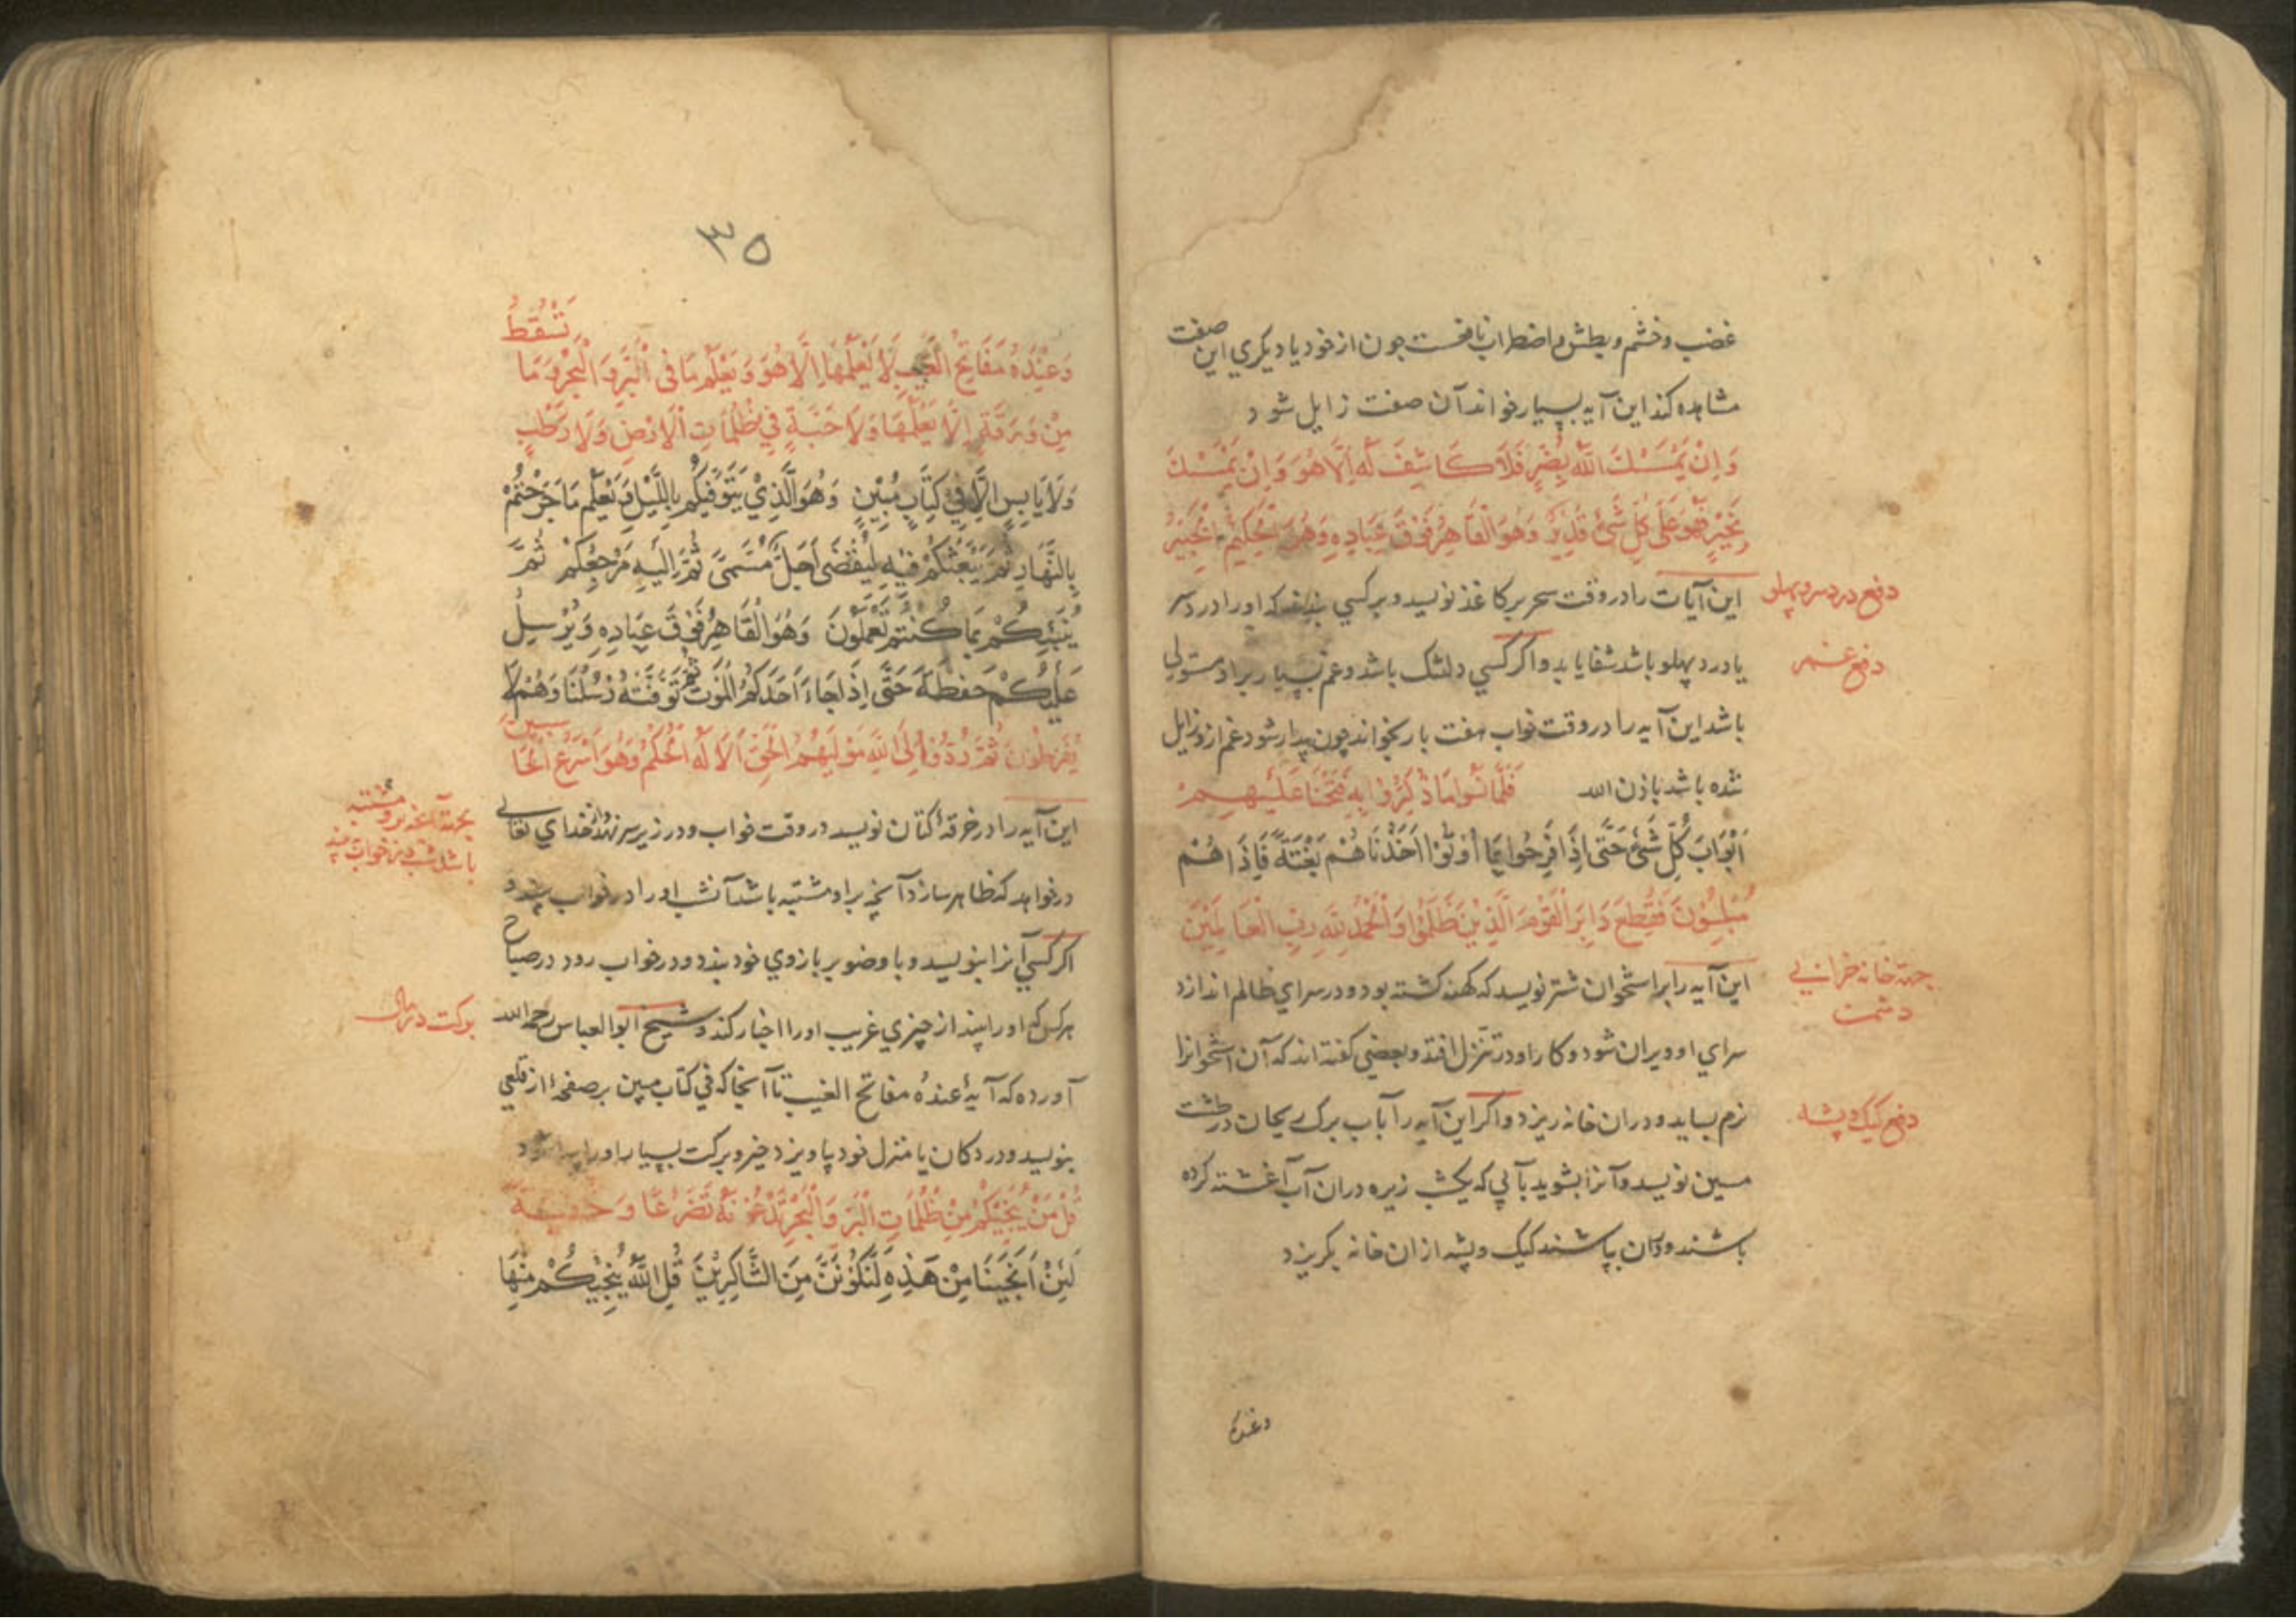 غضب و خشم و بطش و اضطراب یافت چون از خود یا دیکری این صفت
مشاهده کند این آیه بسیار خواند آن صفت زایل شود
وَاِنْ يَمْسَسْكَ اللّٰهُ بِضُرٍّ فَلَا كَاشِفَ لَهُ اِلَّا هُوَ وَاِنْ يَمْسَسْكَ
بِخَيْرٍ فَهُوَ عَلَى كُلِّ شَيْءٍ قَدِيرٌ وَهُوَ الْقَاهِرُ فَوْقَ عِبَادِهِ وَهُوَ الْحَكِيمُ الْخَبِيرُ
این آیات را در وقت سحر بر کاغذ نویسد و بر کسی بندد که او را درد سر
دفع درد سر و پهلو
یا درد پهلو باشد شفا یابد و اکر کسی دلتنک باشد و غم بسیار بر او مستولی
دفع غم
باشد این آیه را در وقت خواب هفت بار بخواند چون بیدار شود غم ازو زایل
شده باشد باذن الله فَلَمَّا نَسُوا مَا ذُكِّرُوا بِهِ فَتَحْنَا عَلَيْهِمْ
اَبْوَابَ كُلِّ شَيْءٍ حَتَّى اِذَا فَرِحُوا بِمَا اُوتُوا اَخَذْنَاهُمْ بَغْتَةً فَاِذَا هُمْ
مُبْلِسُونَ فَقُطِعَ دَابِرُ الْقَوْمِ الَّذِينَ ظَلَمُوا وَالْحَمْدُ لِلّٰهِ رَبِّ الْعَالَمِينَ
این آیه را بر استخوان شتر نویسد که کهنه کشته بود و در سرای ظالم اندازد
جهة خانه خرابی
دشمن
سرای او ویران شود و کار او در تنزل افتد و بعضی کفته اند که آن استخوانرا
نرم بساید و در ان خانه ریزد و اکر این آیه را بآب برک ریحان در طشت
دفع کیک و پشه
مسین نویسد و آنرا بشوید بآبی که یکشب زیره در ان آب آغشته کرده
باشند و دران بپاشند کیک و پشه از ان خانه بکریزد
وعنده
٣٥
تَسْقُطُ
وَعِنْدَهُ مَفَاتِحُ الْغَيْبِ لَا يَعْلَمُهَا اِلَّا هُوَ وَيَعْلَمُ مَا فِي الْبَرِّ وَالْبَحْرِ وَمَا
مِنْ وَرَقَةٍ اِلَّا يَعْلَمُهَا وَلَا حَبَّةٍ فِي ظُلُمَاتِ الْاَرْضِ وَلَا رَطْبٍ
وَلَا يَابِسٍ اِلَّا فِي كِتَابٍ مُبِينٍ وَهُوَ الَّذِي يَتَوَفّٰيكُمْ بِاللَّيْلِ وَيَعْلَمُ مَا جَرَحْتُمْ
بِالنَّهَارِ ثُمَّ يَبْعَثُكُمْ فِيهِ لِيُقْضَى اَجَلٌ مُسَمًّى ثُمَّ اِلَيْهِ مَرْجِعُكُمْ ثُمَّ
يُنَبِّئُكُمْ بِمَا كُنْتُمْ تَعْمَلُونَ وَهُوَ الْقَاهِرُ فَوْقَ عِبَادِهِ وَيُرْسِلُ
عَلَيْكُمْ حَفَظَةً حَتَّى اِذَا جَاءَ اَحَدَكُمُ الْمَوْتُ تَوَفَّتْهُ رُسُلُنَا وَهُمْ لَا
يُفَرِّطُونَ ثُمَّ رُدُّوا اِلَى اللّٰهِ مَوْلٰيهُمُ الْحَقِّ اَلَا لَهُ الْحُكْمُ وَهُوَ اَسْرَعُ الْحَاسِبِينَ
این آیه را در خرقۀ کتان نویسد در وقت خواب و در زیر سر نهد و از خدای تعالی
درخواهد که ظاهر سازد آنچه بر او مشتبه باشد آنشب او را در خواب بیند و
اکر کسی آنرا بنویسد و با وضو بر بازوی خود بندد و در خواب رود در صباح
هر کس که او را بیند از چیزی غریب او را اخبار کند و شیخ ابو العباس رحمه الله
برکت دکان
آورده که آیۀ عنده مفاتح الغیب تا آنجا که فی کتاب مبین بر صفحۀ از قلعی
بنویسد و در دکان یا منزل خود بیاویزد خیر و برکت بسیار او را
قُلْ مَنْ يُنَجِّيكُمْ مِنْ ظُلُمَاتِ الْبَرِّ وَالْبَحْرِ تَدْعُونَهُ تَضَرُّعًا وَخُفْيَةً
لَئِنْ اَنْجَيْتَنَا مِنْ هَذِهِ لَنَكُونَنَّ مِنَ الشَّاكِرِينَ قُلِ اللّٰهُ يُنَجِّيكُمْ مِنْهَا